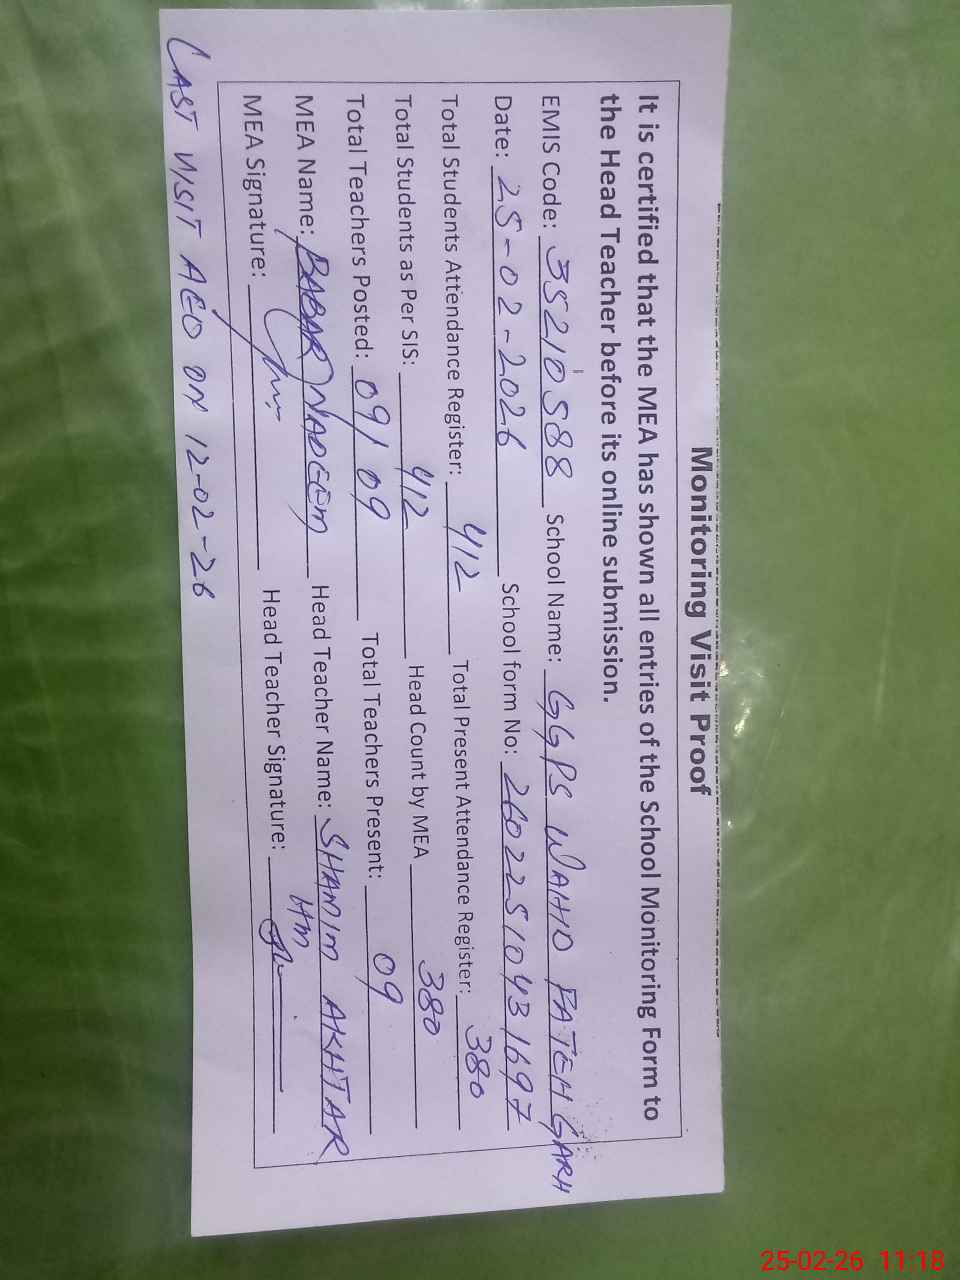 Monitoring Visit Proof
It is certified that the MEA has shown all entries of the School Monitoring Form to
the Head Teacher before its online submission.
EMIS Code: 35210588 School Name: GGPS WAHID FATEH GARH
Date: 25-02-2026 School form No: 26022510431697
Total Students Attendance Register: 412 Total Present Attendance Register: 380
Total Students as Per SIS: 412 Head Count by MEA 380
Total Teachers Posted: 09/09 Total Teachers Present: 09
MEA Name: BABAR NADEEM Head Teacher Name: SHAMIM AKHTAR
HM
MEA Signature: Head Teacher Signature:
LAST VISIT AEO ON 12-02-26
25-02-26 11:18